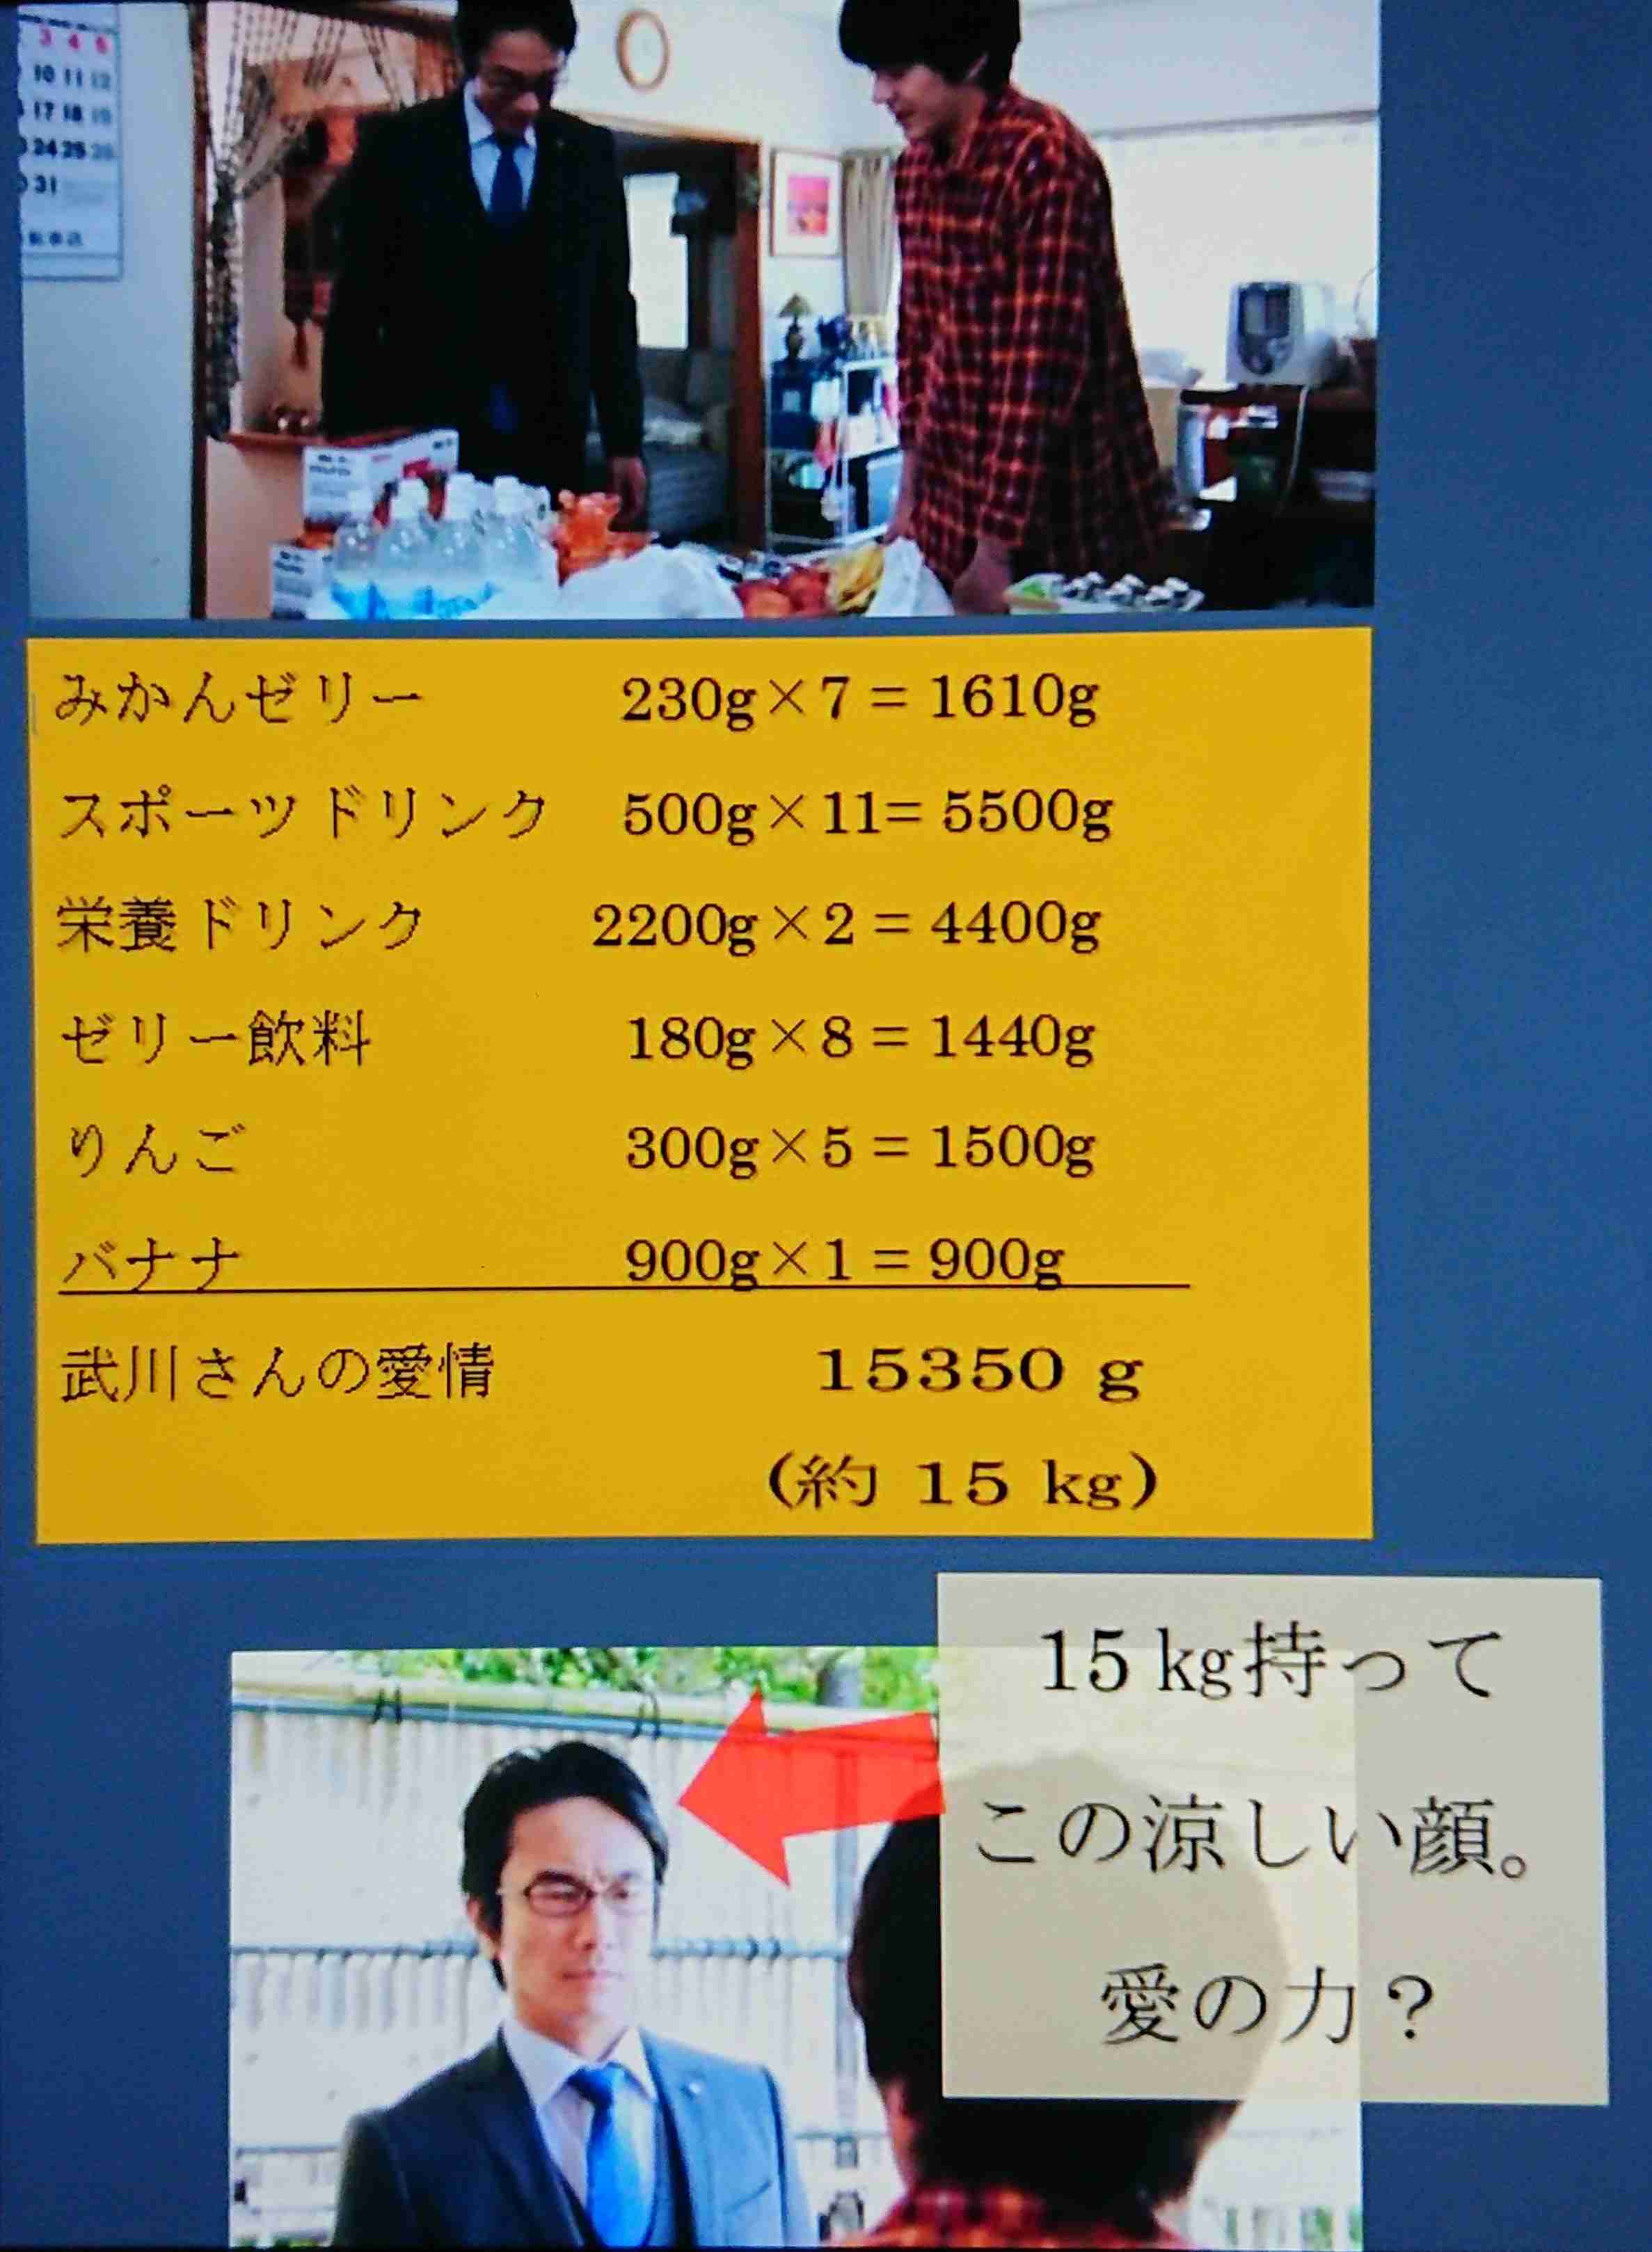 3 4 5
10 11 12
17 18 19
24 25 26
31
みかんゼリー 230g×7 = 1610g
スポーツドリンク 500g×11= 5500g
栄養ドリンク 2200g×2 = 4400g
ゼリー飲料 180g×8 = 1440g
りんご 300g×5 = 1500g
バナナ 900g×1 = 900g
武川さんの愛情 15350 g
(約 15 kg)
15 kg持って
この涼しい顔。
愛の力?